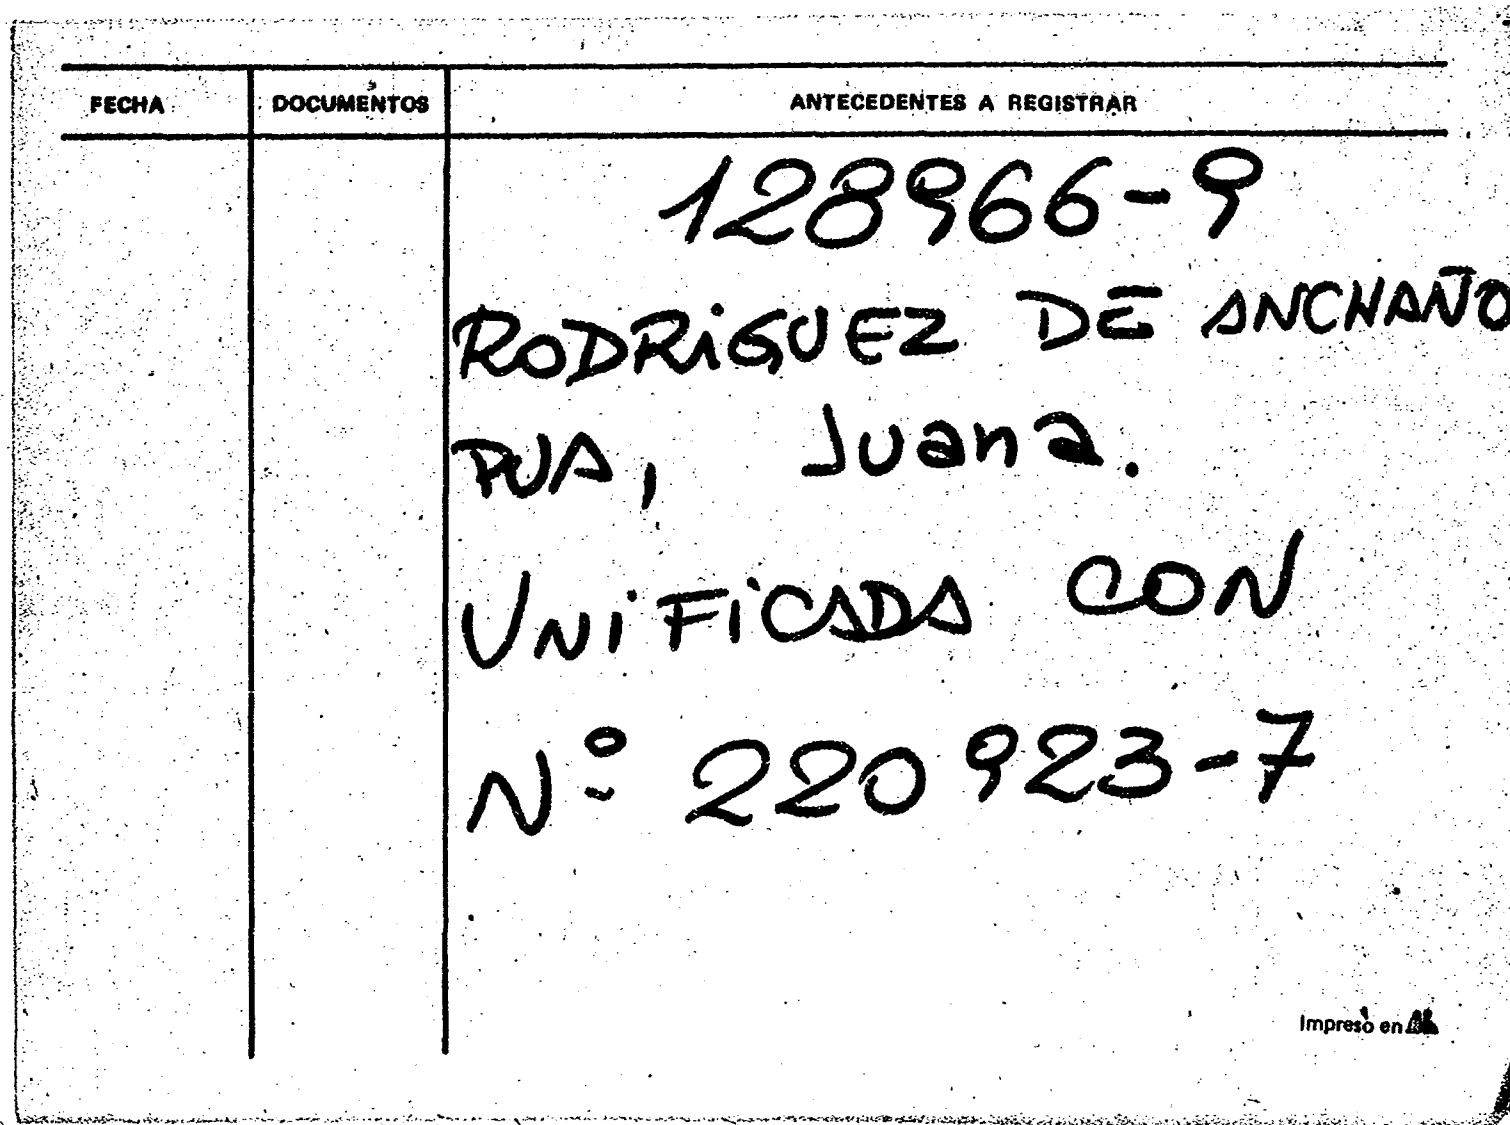 FECHA DOCUMENTOS ANTECEDENTES A REGISTRAR
128966-9
RODRiGUEZ DE ANCHAÑO
PUA, Juana.
UNiFiCADA CON
Nº 220923-7
Impreso en